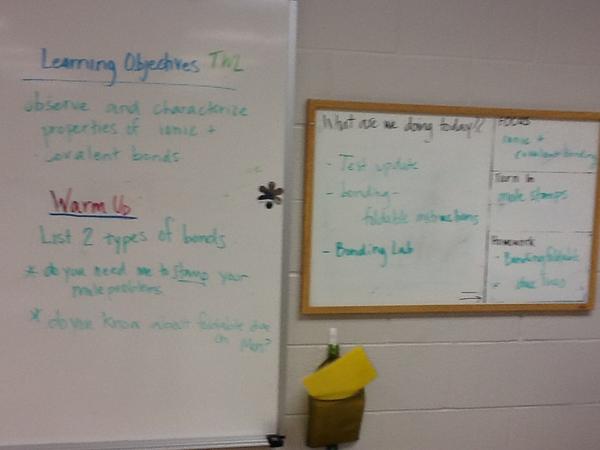 Learning Objectives TWL
observe and characterize
properties of ionic +
covalent bonds
Warm Up
List 2 types of bonds
* do you need me to stamp your
mole problems
* do you know about foldable due
on Mon?
What are we doing today??
- Test update
- bonding -
foldable instructions
- Bonding Lab
FOCUS
ionic +
covalent bonding
Turn In
mole stamps
Homework
- Bonding foldable
* due